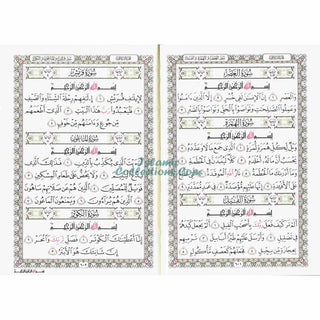 سُورَةُ العَصْرِ
بِسْمِ اللَّهِ الرَّحْمَٰنِ الرَّحِيمِ
وَالْعَصْرِ ١ إِنَّ الْإِنسَانَ لَفِي خُسْرٍ ٢ إِلَّا الَّذِينَ ءَامَنُوا
وَعَمِلُوا الصَّالِحَاتِ وَتَوَاصَوْا بِالْحَقِّ وَتَوَاصَوْا بِالصَّبْرِ ٣
سُورَةُ الهُمَزَةِ
بِسْمِ اللَّهِ الرَّحْمَٰنِ الرَّحِيمِ
وَيْلٌ لِّكُلِّ هُمَزَةٍ لُّمَزَةٍ ١ الَّذِي جَمَعَ مَالًا وَعَدَّدَهُ ٢
يَحْسَبُ أَنَّ مَالَهُ أَخْلَدَهُ ٣ كَلَّا لَيُنبَذَنَّ فِي الْحُطَمَةِ ٤
وَمَا أَدْرَاكَ مَا الْحُطَمَةُ ٥ نَارُ اللَّهِ الْمُوقَدَةُ ٦ الَّتِي تَطَّلِعُ
عَلَى الْأَفْئِدَةِ ٧ إِنَّهَا عَلَيْهِم مُّؤْصَدَةٌ ٨ فِي عَمَدٍ مُّمَدَّدَةٍ ٩
سُورَةُ الفِيلِ
بِسْمِ اللَّهِ الرَّحْمَٰنِ الرَّحِيمِ
أَلَمْ تَرَ كَيْفَ فَعَلَ رَبُّكَ بِأَصْحَابِ الْفِيلِ ١ أَلَمْ يَجْعَلْ كَيْدَهُمْ
فِي تَضْلِيلٍ ٢ وَأَرْسَلَ عَلَيْهِمْ طَيْرًا أَبَابِيلَ ٣ تَرْمِيهِم
بِحِجَارَةٍ مِّن سِجِّيلٍ ٤ فَجَعَلَهُمْ كَعَصْفٍ مَّأْكُولٍ ٥
سُورَةُ قُرَيْشٍ
بِسْمِ اللَّهِ الرَّحْمَٰنِ الرَّحِيمِ
لِإِيلَافِ قُرَيْشٍ ١ إِيلَافِهِمْ رِحْلَةَ الشِّتَاءِ وَالصَّيْفِ
٢ فَلْيَعْبُدُوا رَبَّ هَٰذَا الْبَيْتِ ٣ الَّذِي أَطْعَمَهُم
مِّن جُوعٍ وَءَامَنَهُم مِّنْ خَوْفٍ ٤
سُورَةُ المَاعُونِ
بِسْمِ اللَّهِ الرَّحْمَٰنِ الرَّحِيمِ
أَرَءَيْتَ الَّذِي يُكَذِّبُ بِالدِّينِ ١ فَذَٰلِكَ الَّذِي
يَدُعُّ الْيَتِيمَ ٢ وَلَا يَحُضُّ عَلَى طَعَامِ الْمِسْكِينِ ٣
فَوَيْلٌ لِّلْمُصَلِّينَ ٤ الَّذِينَ هُمْ عَن صَلَاتِهِمْ سَاهُونَ ٥
الَّذِينَ هُمْ يُرَاءُونَ ٦ وَيَمْنَعُونَ الْمَاعُونَ ٧
سُورَةُ الكَوْثَرِ
بِسْمِ اللَّهِ الرَّحْمَٰنِ الرَّحِيمِ
إِنَّا أَعْطَيْنَاكَ الْكَوْثَرَ ١ فَصَلِّ لِرَبِّكَ وَانْحَرْ ٢
إِنَّ شَانِئَكَ هُوَ الْأَبْتَرُ ٣
Islamic
Collections.Com